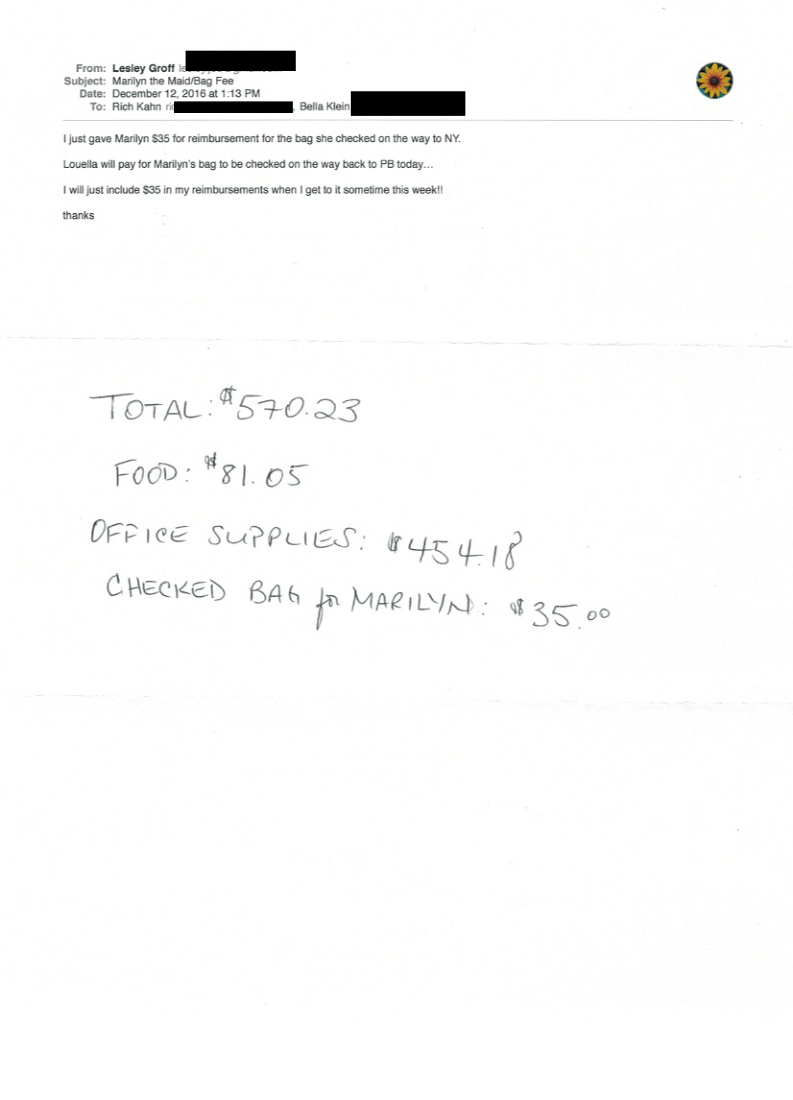 From: Lesley Groff
Subject: Marilyn the Maid/Bag Fee
Date: December 12, 2016 at 1:13 PM
To: Rich Kahn , Bella Klein
I just gave Marilyn $35 for reimbursement for the bag she checked on the way to NY.
Louella will pay for Marilyn's bag to be checked on the way back to PB today…
I will just include $35 in my reimbursements when I get to it sometime this week!!
thanks
TOTAL: $570.23
FOOD: $81.05
OFFICE SUPPLIES: $454.18
CHECKED BAG for MARILYN: $35.00